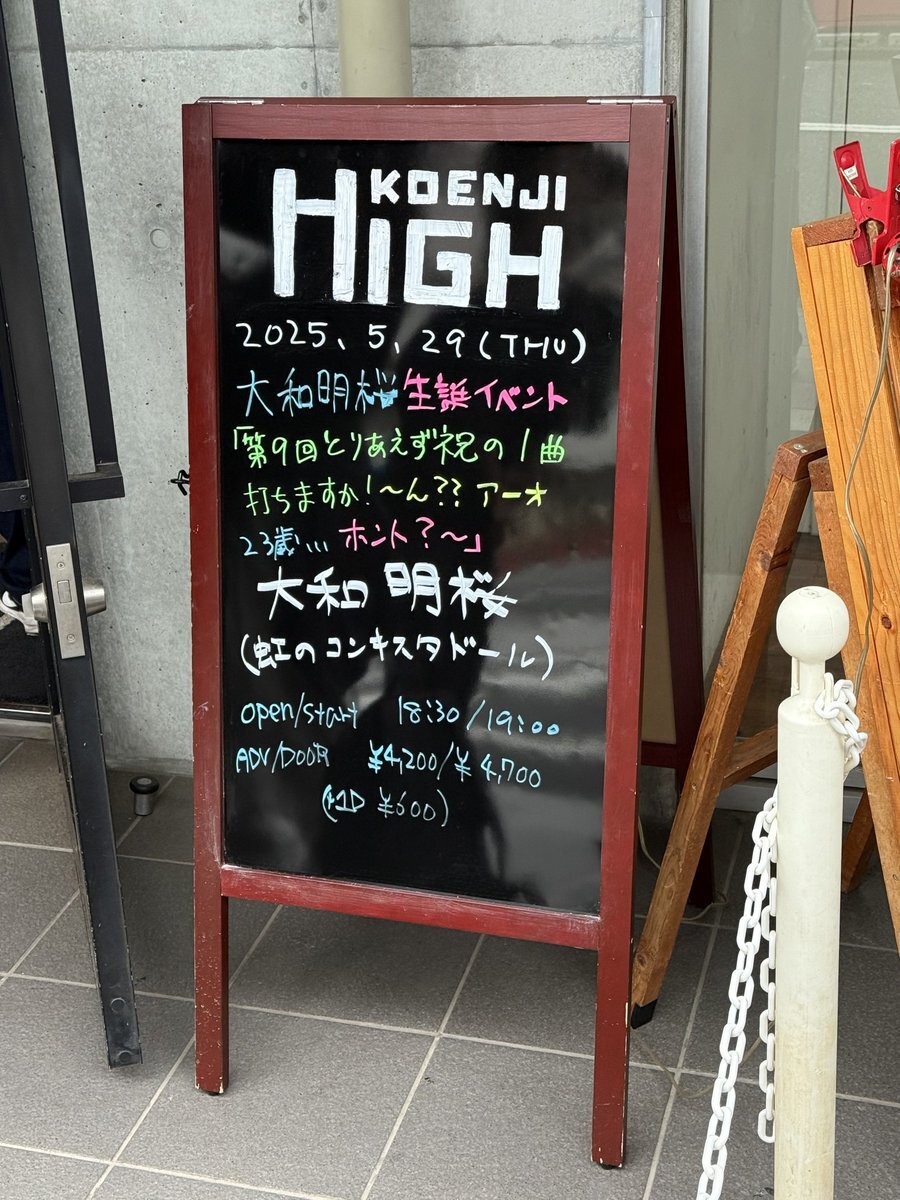 KOENJI
HIGH
2025、5、29(THU)
大和明桜 生誕イベント
「第9回とりあえず祝の1曲
打ちますか!〜ん?? アーオ
23歳... ホント?〜」
大和 明桜
(虹のコンキスタドール)
open/start 18:30/19:00
ADV/DOOR ¥4,200/¥4,700
(+1D ¥600)